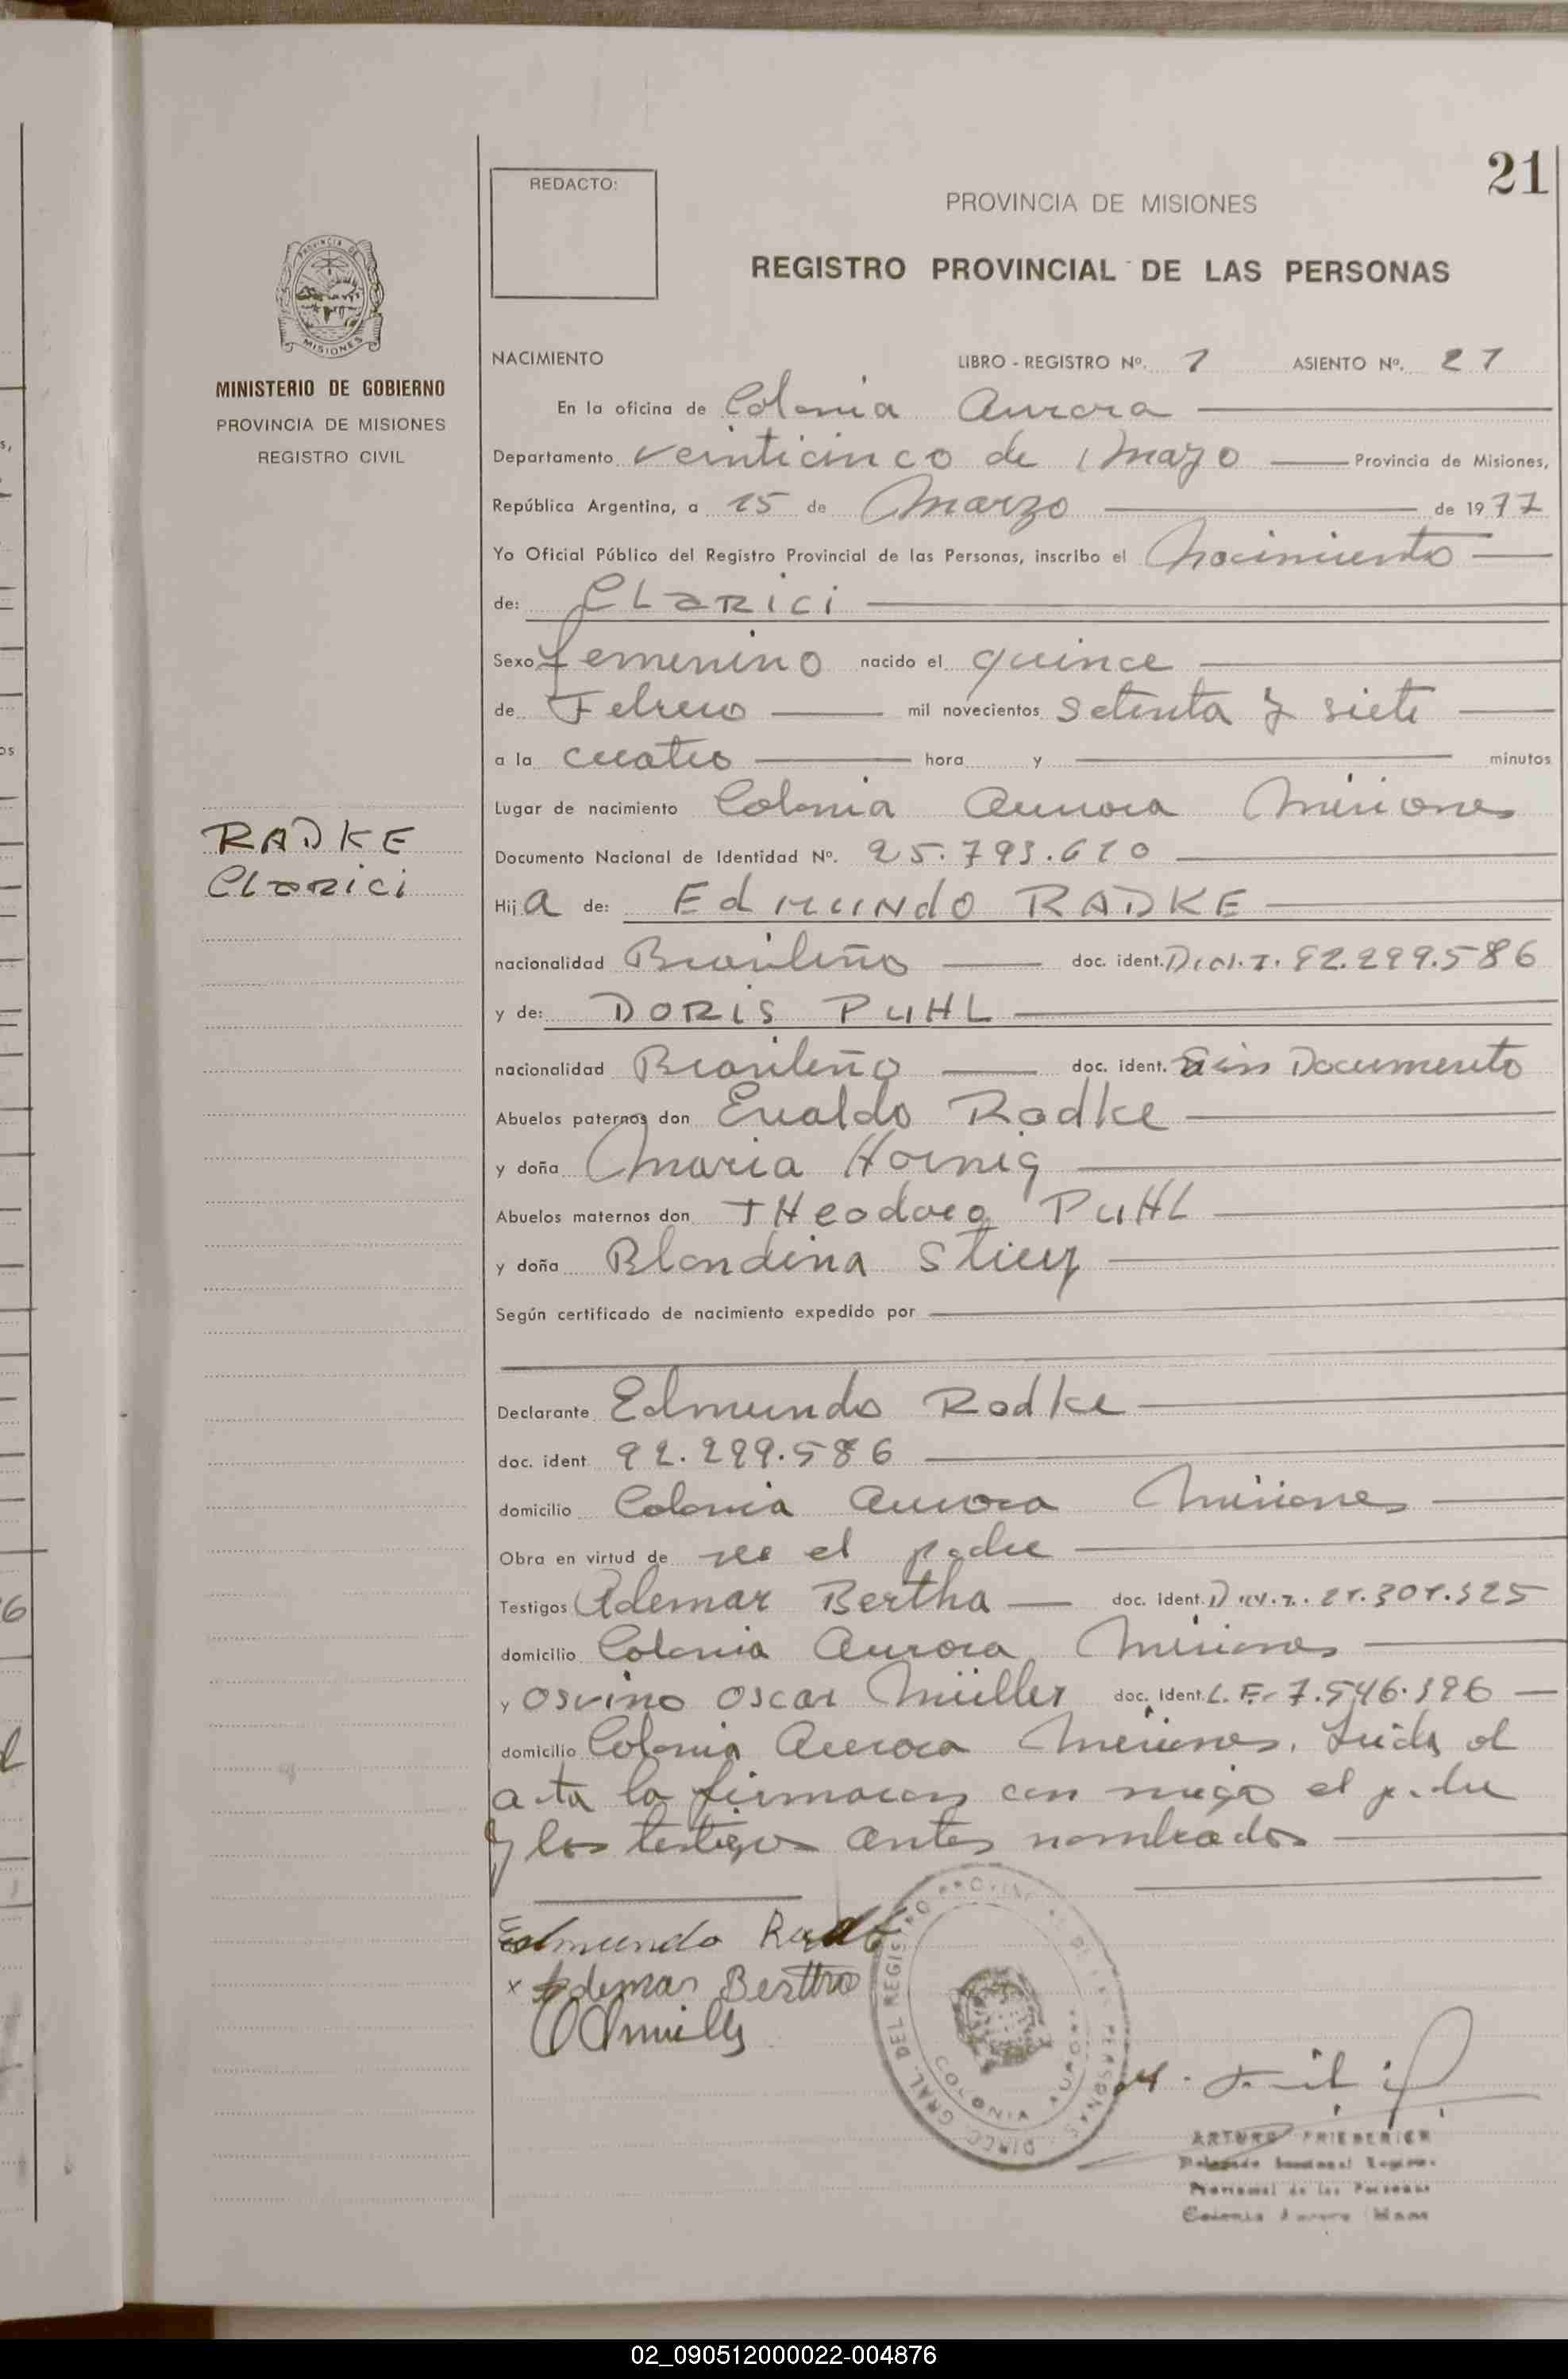 21
REDACTO:
PROVINCIA DE MISIONES
REGISTRO PROVINCIAL DE LAS PERSONAS
PROVINCIA DE
MISIONES
MINISTERIO DE GOBIERNO
PROVINCIA DE MISIONES
REGISTRO CIVIL
NACIMIENTO LIBRO - REGISTRO Nº. 1 ASIENTO Nº. 21
En la oficina de Colonia Aurora
Departamento veinticinco de Mayo Provincia de Misiones,
República Argentina, a 15 de Marzo de 1977
Yo Oficial Público del Registro Provincial de las Personas, inscribo el Nacimiento
de: CLARICI
Sexo femenino nacido el quince
de Febrero mil novecientos setenta y siete
a la cuatro hora y minutos
Lugar de nacimiento Colonia Aurora Misiones
RADKE
CLARICI
Documento Nacional de Identidad Nº. 25.793.610
Hija de: EdMUNdO RADKE
nacionalidad Brasileño doc. ident. D.N.I. 92.299.586
y de: DORIS PUHL
nacionalidad Brasileño doc. ident. Sin Documento
Abuelos paternos don Evaldo Radke
y doña Maria Hornig
Abuelos maternos don THeodoro PUHL
y doña Blondina
Según certificado de nacimiento expedido por
Declarante Edmundo Radke
doc. ident 92.299.586
domicilio Colonia Aurora Misiones
Obra en virtud de ser el padre
Testigos Ademar Bertha doc. ident. D.N.I. 21.301.325
domicilio Colonia Aurora Misiones
y Osvino Oscar Müller doc. ident. L.E. 7.546.396
domicilio Colonia Aurora Misiones. Leida el
acta la firmaron con migo el padre
y los testigos antes nombrados
Edmundo Radke
x Ademar Bertha
DIREC. GRAL. DEL REGISTRO PROVINCIAL DE LAS PERSONAS
COLONIA AURORA
ARTURO FRIEDERICH
Provincial de las Personas
Colonia Aurora
02_090512000022-004876